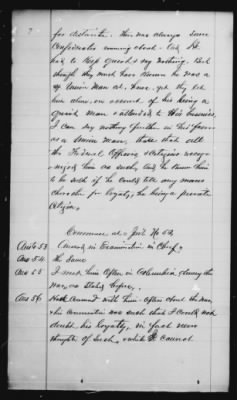 7
for distrito. There was always some
Confederates running about - And he
had to keep quiet & say nothing. But
though they must have known he was a
Union Man at home, yet they let
him alone, on account of his being a
quiet man & attended to His business,
I can say nothing further in his favor
as a Union man, than that all
the Federal Officers & Citizens recog-
nized him as such, and he knew him
to be such if he could tell any man's
character for loyalty, he being a private
Citizen.
Commence at Int. No 53,
Ans to 53 Answered in Examination in Chief,
Ans 54. the same
Ans 55 I met him often in Columbia during the
war, as stated before,
Ans 56. Had conversed with him often about the war,
his conversation was such that I could not
doubt his loyalty, in fact never
thought of such, & while I cannot